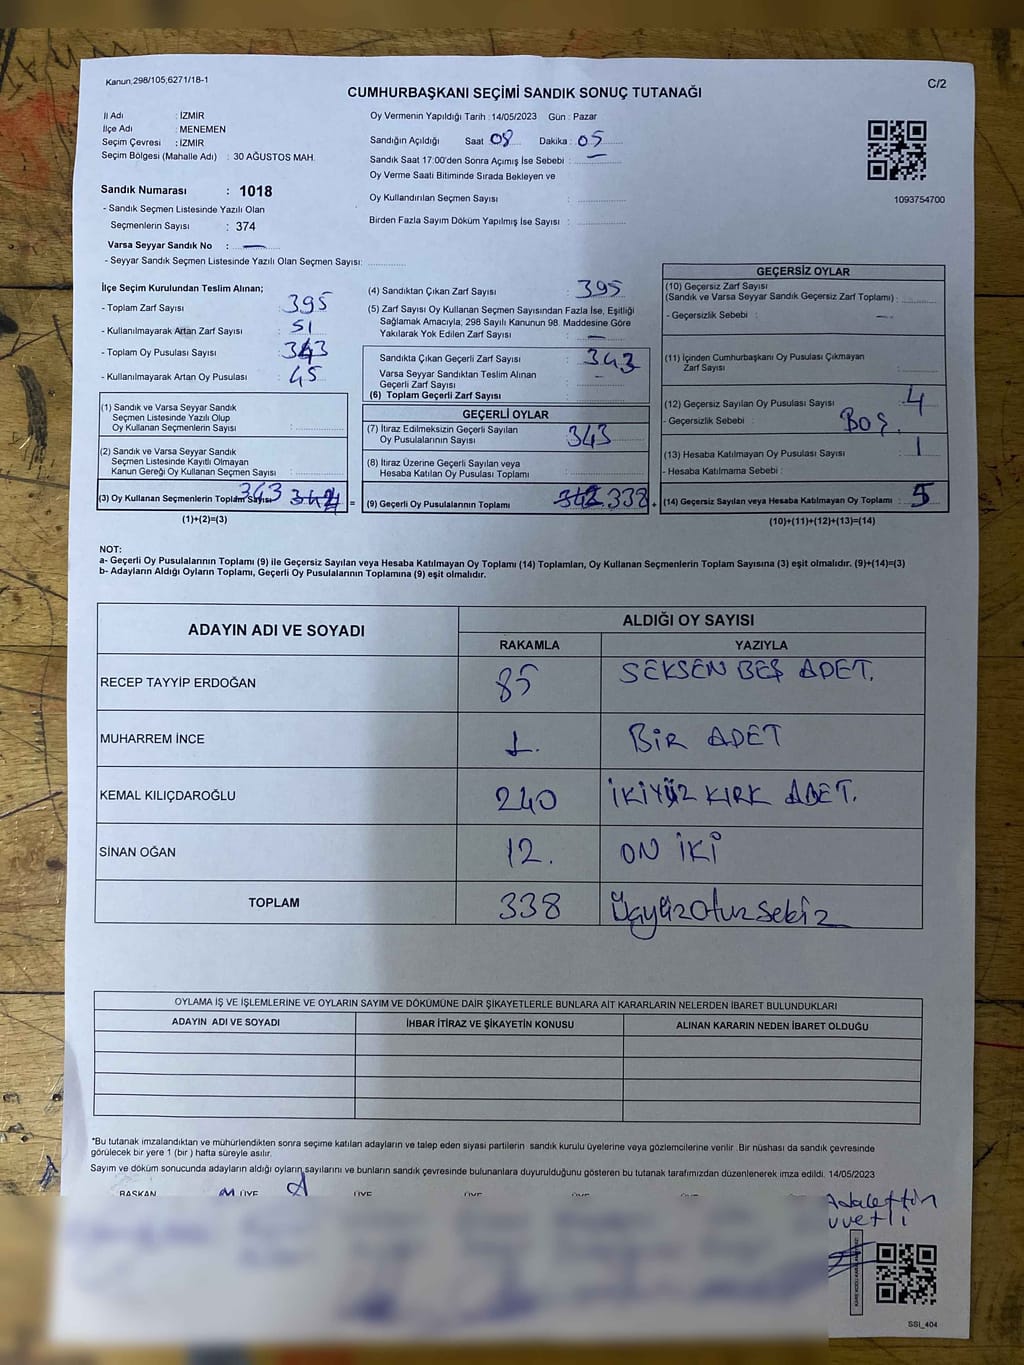 Kanun.298/105,6271/18-1
C/2
CUMHURBAŞKANI SEÇİMİ SANDIK SONUÇ TUTANAĞI
İl Adı : İZMİR
İlçe Adı : MENEMEN
Seçim Çevresi : İZMİR
Seçim Bölgesi (Mahalle Adı) : 30 AĞUSTOS MAH.
Sandık Numarası : 1018
- Sandık Seçmen Listesinde Yazılı Olan
Seçmenlerin Sayısı : 374
Varsa Seyyar Sandık No : —
- Seyyar Sandık Seçmen Listesinde Yazılı Olan Seçmen Sayısı:
Oy Vermenin Yapıldığı Tarih : 14/05/2023 Gün : Pazar
Sandığın Açıldığı Saat 08 Dakika : 05
Sandık Saat 17:00'den Sonra Açılmış İse Sebebi : —
Oy Verme Saati Bitiminde Sırada Bekleyen ve
Oy Kullandırılan Seçmen Sayısı :
Birden Fazla Sayım Döküm Yapılmış İse Sayısı :
1093754700
İlçe Seçim Kurulundan Teslim Alınan;
- Toplam Zarf Sayısı : 395
- Kullanılmayarak Artan Zarf Sayısı : 51
- Toplam Oy Pusulası Sayısı : 343
- Kullanılmayarak Artan Oy Pusulası : 45
(1) Sandık ve Varsa Seyyar Sandık
Seçmen Listesinde Yazılı Olup
Oy Kullanan Seçmenlerin Sayısı :
(2) Sandık ve Varsa Seyyar Sandık
Seçmen Listesinde Kayıtlı Olmayan
Kanun Gereği Oy Kullanan Seçmen Sayısı :
(3) Oy Kullanan Seçmenlerin Toplam Sayısı 343 =
(1)+(2)=(3)
(4) Sandıktan Çıkan Zarf Sayısı : 395
(5) Zarf Sayısı Oy Kullanan Seçmen Sayısından Fazla İse, Eşitliği
Sağlamak Amacıyla, 298 Sayılı Kanunun 98. Maddesine Göre
Yakılarak Yok Edilen Zarf Sayısı : —
Sandıkta Çıkan Geçerli Zarf Sayısı : 343
Varsa Seyyar Sandıktan Teslim Alınan
Geçerli Zarf Sayısı :
(6) Toplam Geçerli Zarf Sayısı :
GEÇERLİ OYLAR
(7) İtiraz Edilmeksizin Geçerli Sayılan
Oy Pusulalarının Sayısı : 343
(8) İtiraz Üzerine Geçerli Sayılan veya
Hesaba Katılan Oy Pusulası Toplamı :
(9) Geçerli Oy Pusulalarının Toplamı 342 338 +
GEÇERSİZ OYLAR
(10) Geçersiz Zarf Sayısı
(Sandık ve Varsa Seyyar Sandık Geçersiz Zarf Toplamı) :
- Geçersizlik Sebebi : —
(11) İçinden Cumhurbaşkanı Oy Pusulası Çıkmayan
Zarf Sayısı :
(12) Geçersiz Sayılan Oy Pusulası Sayısı : 4
- Geçersizlik Sebebi : BOŞ.
(13) Hesaba Katılmayan Oy Pusulası Sayısı : 1
- Hesaba Katılmama Sebebi :
(14) Geçersiz Sayılan veya Hesaba Katılmayan Oy Toplamı : 5
(10)+(11)+(12)+(13)=(14)
NOT:
a- Geçerli Oy Pusulalarının Toplamı (9) ile Geçersiz Sayılan veya Hesaba Katılmayan Oy Toplamı (14) Toplamları, Oy Kullanan Seçmenlerin Toplam Sayısına (3) eşit olmalıdır. (9)+(14)=(3)
b- Adayların Aldığı Oyların Toplamı, Geçerli Oy Pusulalarının Toplamına (9) eşit olmalıdır.
ADAYIN ADI VE SOYADI
ALDIĞI OY SAYISI
RAKAMLA YAZIYLA
RECEP TAYYİP ERDOĞAN 85 SEKSEN BEŞ ADET.
MUHARREM İNCE 1. BİR ADET
KEMAL KILIÇDAROĞLU 240 İKİYÜZ KIRK ADET.
SİNAN OĞAN 12. ON İKİ
TOPLAM 338 Üçyüzotuzsekiz
OYLAMA İŞ VE İŞLEMLERİNE VE OYLARIN SAYIM VE DÖKÜMÜNE DAİR ŞİKAYETLERLE BUNLARA AİT KARARLARIN NELERDEN İBARET BULUNDUKLARI
ADAYIN ADI VE SOYADI İHBAR İTİRAZ VE ŞİKAYETİN KONUSU ALINAN KARARIN NEDEN İBARET OLDUĞU
*Bu tutanak imzalandıktan ve mühürlendikten sonra seçime katılan adayların ve talep eden siyasi partilerin sandık kurulu üyelerine veya gözlemcilerine verilir. Bir nüshası da sandık çevresinde
görülecek bir yere 1 (bir) hafta süreyle asılır.
Sayım ve döküm sonucunda adayların aldığı oyların sayılarını ve bunların sandık çevresinde bulunanlara duyurulduğunu gösteren bu tutanak tarafımızdan düzenlenerek imza edildi. 14/05/2023
BAŞKAN ÜYE ÜYE ÜYE ÜYE ÜYE
Adalettin
uvetli
SSİ_404